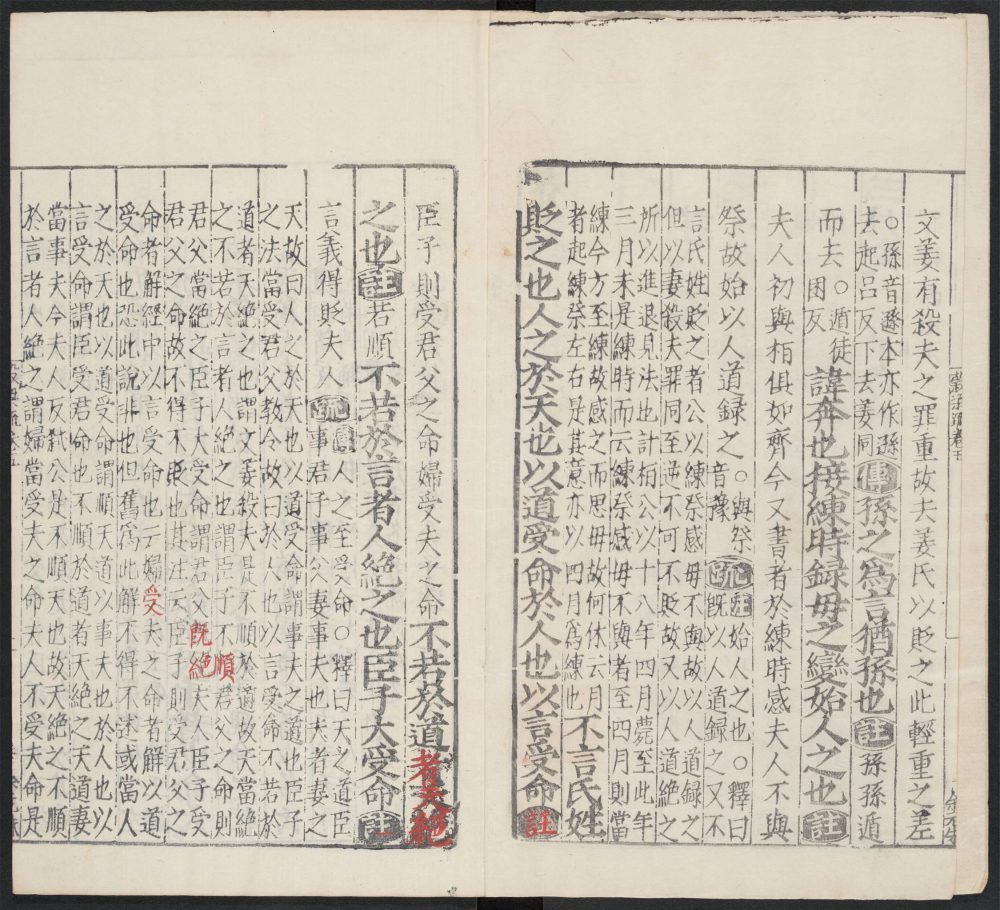 文姜有殺夫之罪重故夫姜氏以貶之此輕重之差
○孫音遜本亦作孫
去起呂反下去姜同
傳孫之為言猶孫也註孫孫遁
而去
○遁徒
困反
諱奔也接練時録母之變始人之也註
夫人初與桓俱如齊今又書者於練時感夫人不與
祭故始以人道録之
○與祭
音豫
疏註始人之也○釋曰
既以人道録之又不
言氏姓貶之者公以練祭感母不與故以人道録之
但以妻殺夫罪同至逆不可不貶故又以人道絶之
所以進退見法也計桓公以十八年四月薨至此年
三月未是練時而云練祭感母不與者至四月則當
練今方至練故感之而思母故何休云月
者起練祭左右是其意亦以四月為練也
不言氏姓
貶之也人之於天也以道受命於人也以言受命註
臣子則受君父之命婦受夫之命不若於道者天絕
之也註若順不若於言者人絶之也臣子大受命註
言義得貶夫人
疏傳人之至受命○釋曰天之道臣
事君子事父妻事夫也夫者妻之
天故曰人之於天也以道受命謂事夫之道也臣子
之法當受君父教令故曰於人也以言受命不若於
道者天絶之謂文姜殺夫是不順於道故天當絶
之不若於言者人絶之也謂臣子不順君父之命則
君父當絶之臣子大受命謂君父既絶夫人臣子受
君父之命故不得不貶也其注云臣子則受君父之
命者解經中以言受命也云婦受夫之命者解以道
受命也恐此說非也但舊為此解不得不述或當人
之於天也以道受命謂順天道以事夫也於人也以
言受命謂臣受君命也不順於道者天絶之天道妻
當事夫今夫人反弒公是不順天也故天絶之不順
於言者人絶之謂婦當受夫之命夫人不受夫命是